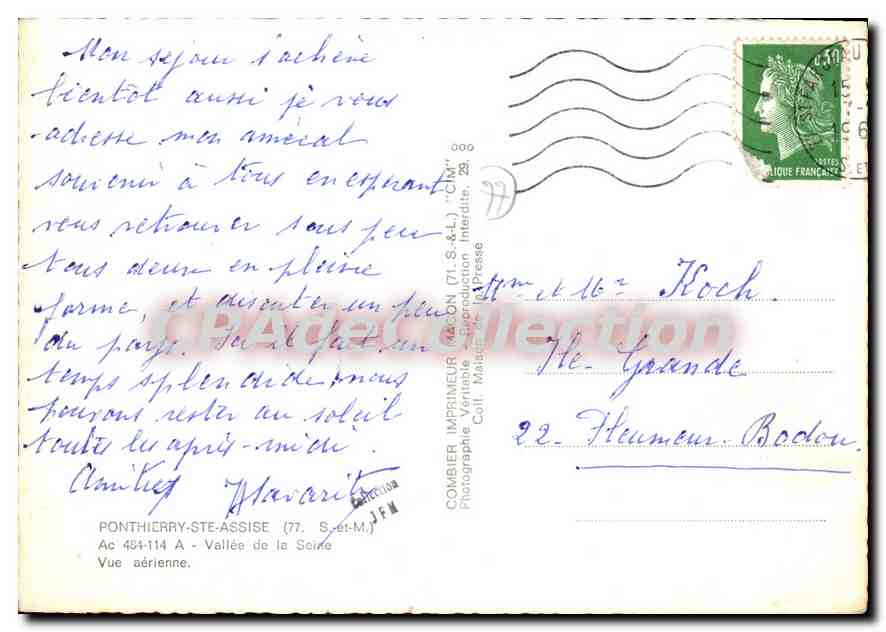 Mon séjour s'achève
bientôt aussi je vous
adresse mon amical
souvenir à tous en espérant
vous retrouver sous peu
tous deux en pleine
forme, et discuter un peu
du pays. Ici il fait un
temps splendide, nous
pouvons rester au soleil
toutes les après-midi.
Amitiés
PONTHIERRY-STE-ASSISE (77. S.-et-M.)
Ac 484-114 A - Vallée de la Seine
Vue aérienne.
COMBIER IMPRIMEUR MACON (71. S.-&-L.) "CIM"
Photographie Véritable - Reproduction Interdite. 29.
Coll. Maison de la Presse
000
77
0,30
POSTES
BLIQUE FRANÇAISE
Mme et Mr Koch.
Ile-Grande
22- Pleumeur-Bodou.
CPAdeCollection
Collection
JFM